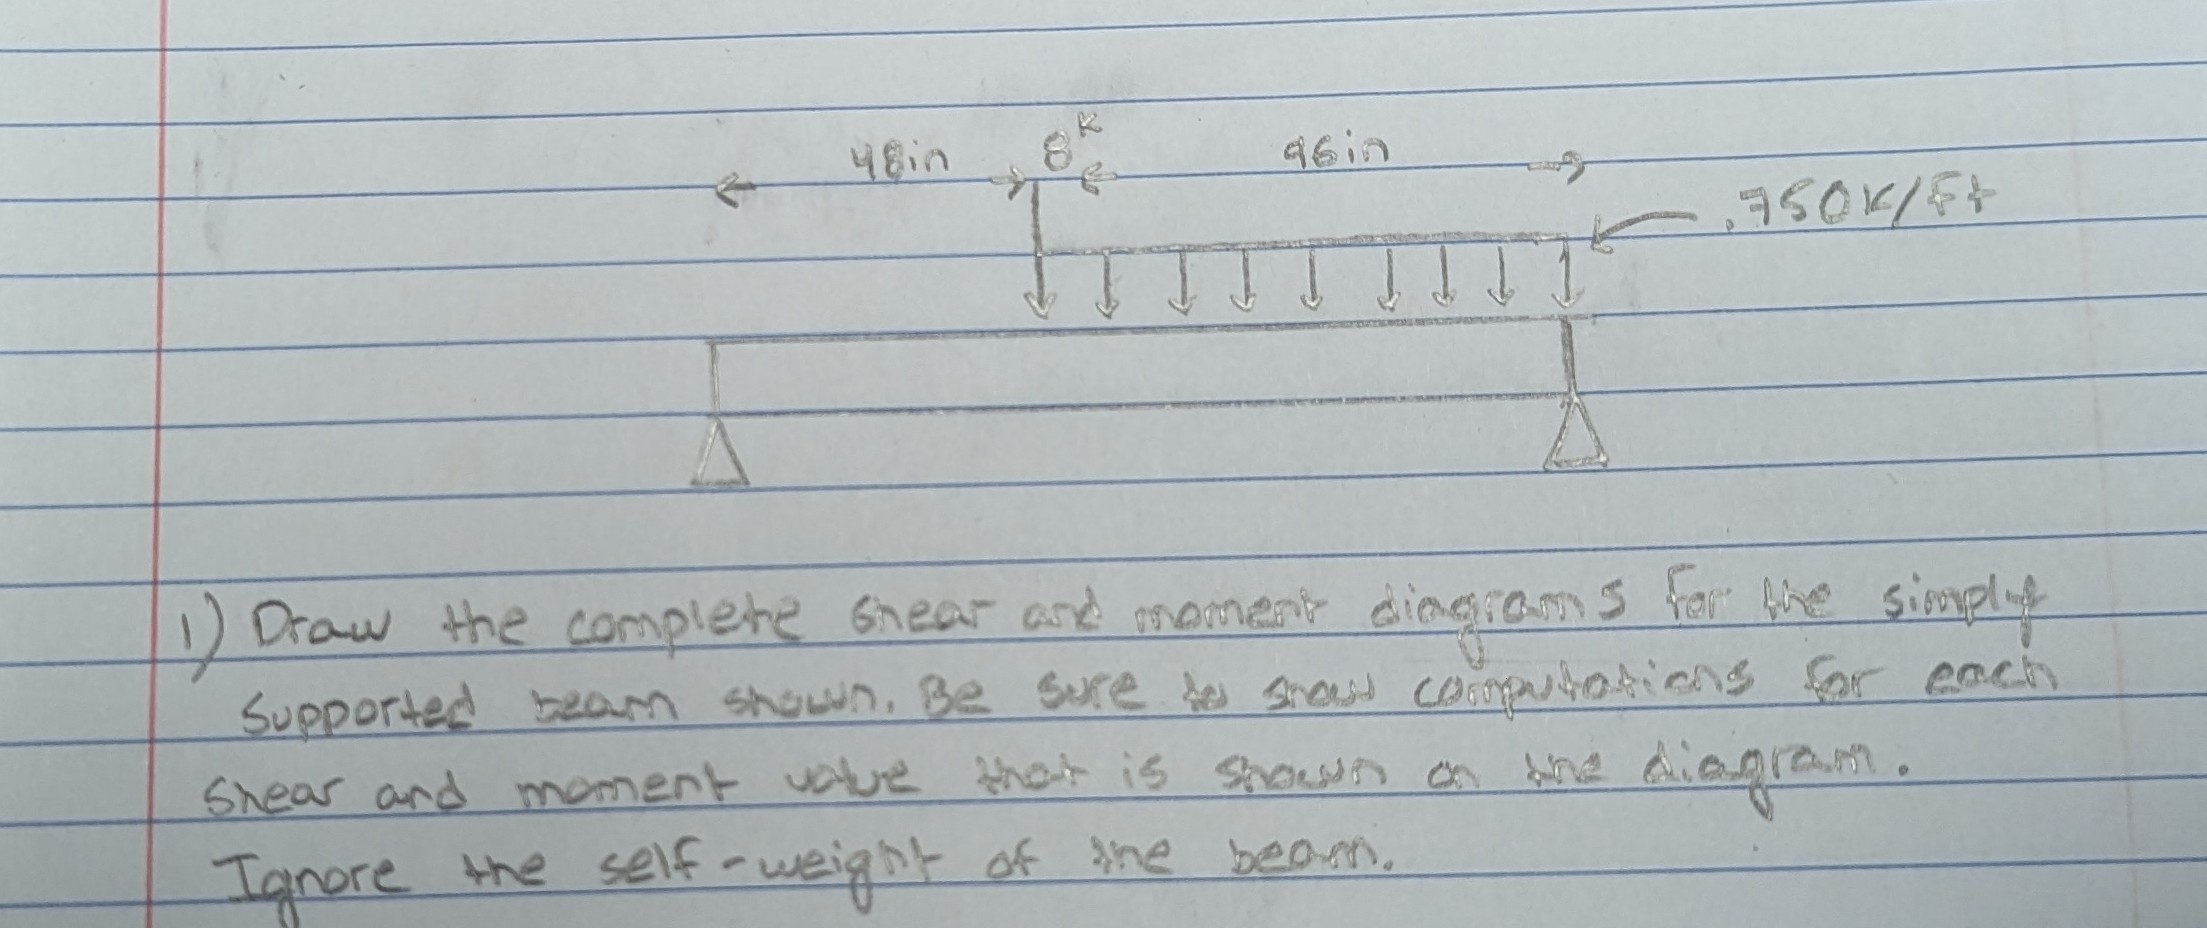 48in 8K 96in
.750K/ft
1) Draw the complete shear and moment diagrams for the simply
supported beam shown. Be sure to show computations for each
shear and moment value that is shown on the diagram.
Ignore the self-weight of the beam.